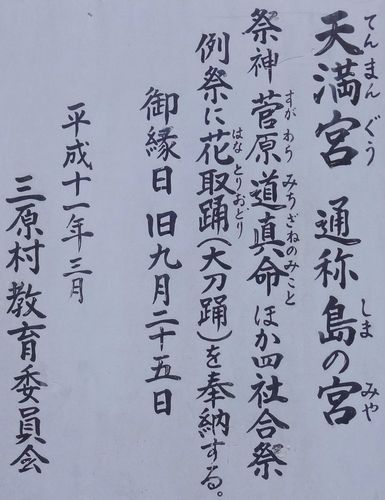 天満宮 通称 島の宮
祭神 菅原道真命 ほか四社合祭
例祭に花取踊(大刀踊)を奉納する。
御縁日 旧九月二十五日
平成十一年三月
三原村教育委員会